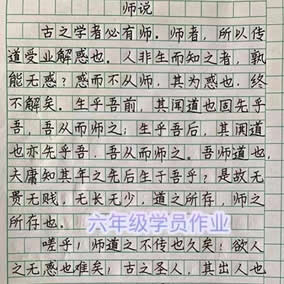 师说
古之学者必有师。师者，所以传
道受业解惑也。人非生而知之者，孰
能无惑？惑而不从师，其为惑也，终
不解矣。生乎吾前，其闻道也固先乎
吾，吾从而师之；生乎吾后，其闻道
也亦先乎吾，吾从而师之。吾师道也，
夫庸知其年之先后生于吾乎？是故无
贵无贱，无长无少，道之所存，师之
所存也。
六年级学员作业
嗟乎！师道之不传也久矣！欲人
之无惑也难矣！古之圣人，其出人也